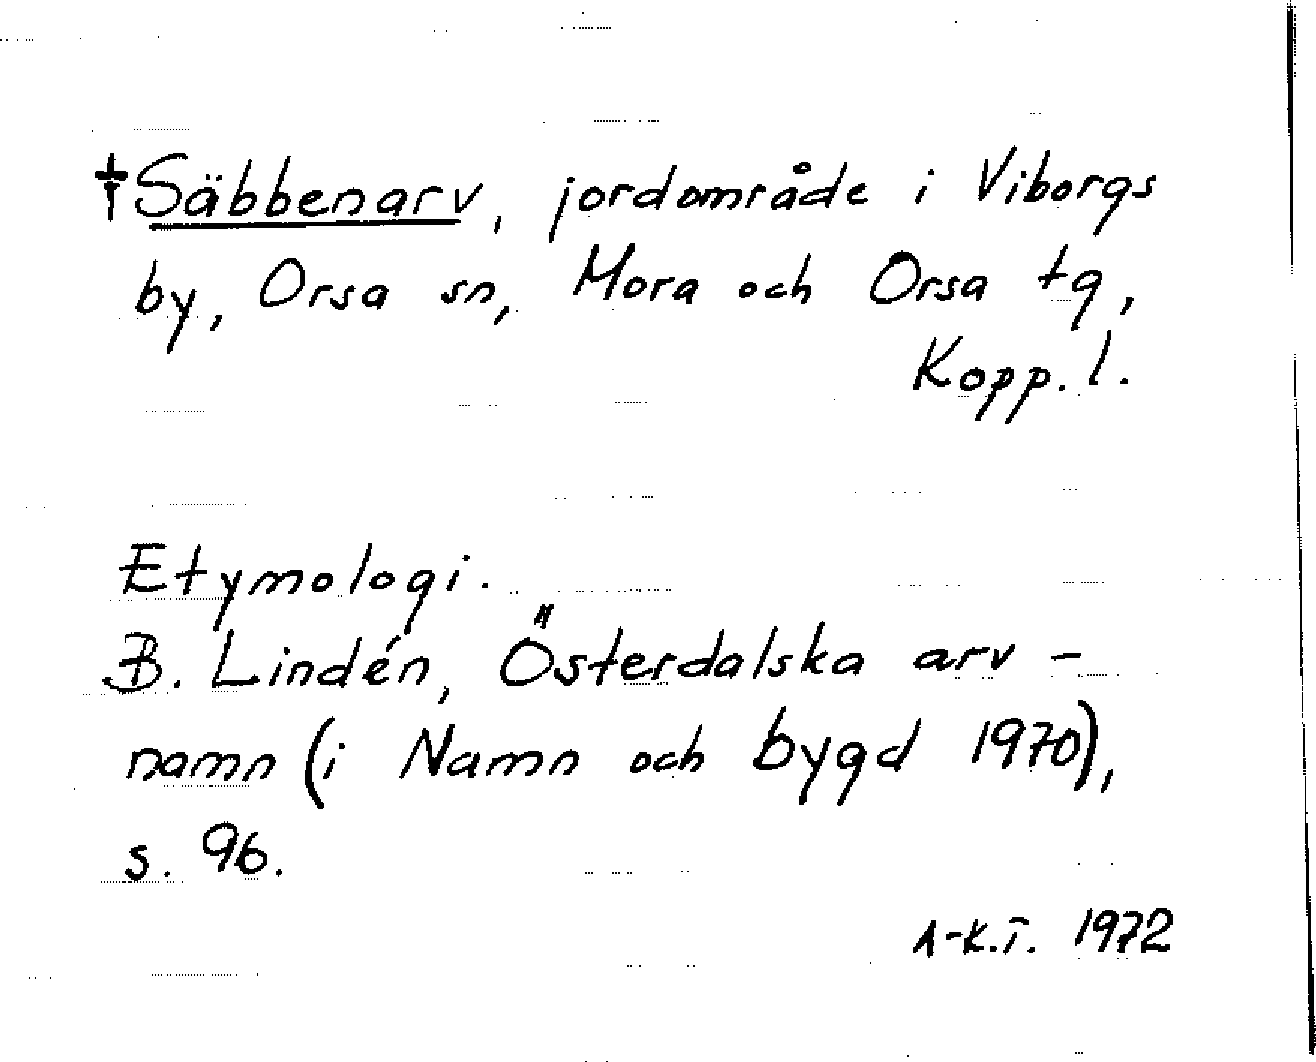 †Säbbenarv, jordområde i Viborgs
by, Orsa sn, Mora och Orsa tg,
Kopp. l.
Etymologi.
B. Lindén, Österdalska arv-
namn (i Namn och bygd 1970),
s. 96.
A-K.T. 1972